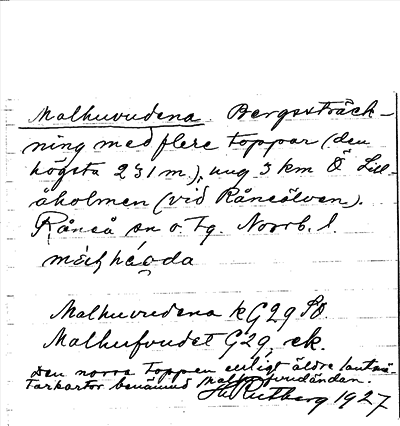 Malhuvudena. Bergssträck-
ning med flere toppar (den
högsta 231 m.), ung 3 km Ö Lill-
åholmen (vid Råneälven).
Råneå sn o. Tg. Norrb. l.
Malhuvudena k G29 SO.
Malhufvudet G29, ek.
Den norra toppen enligt äldre lantmä-
terikartor benämnd
H. Rutberg 1927